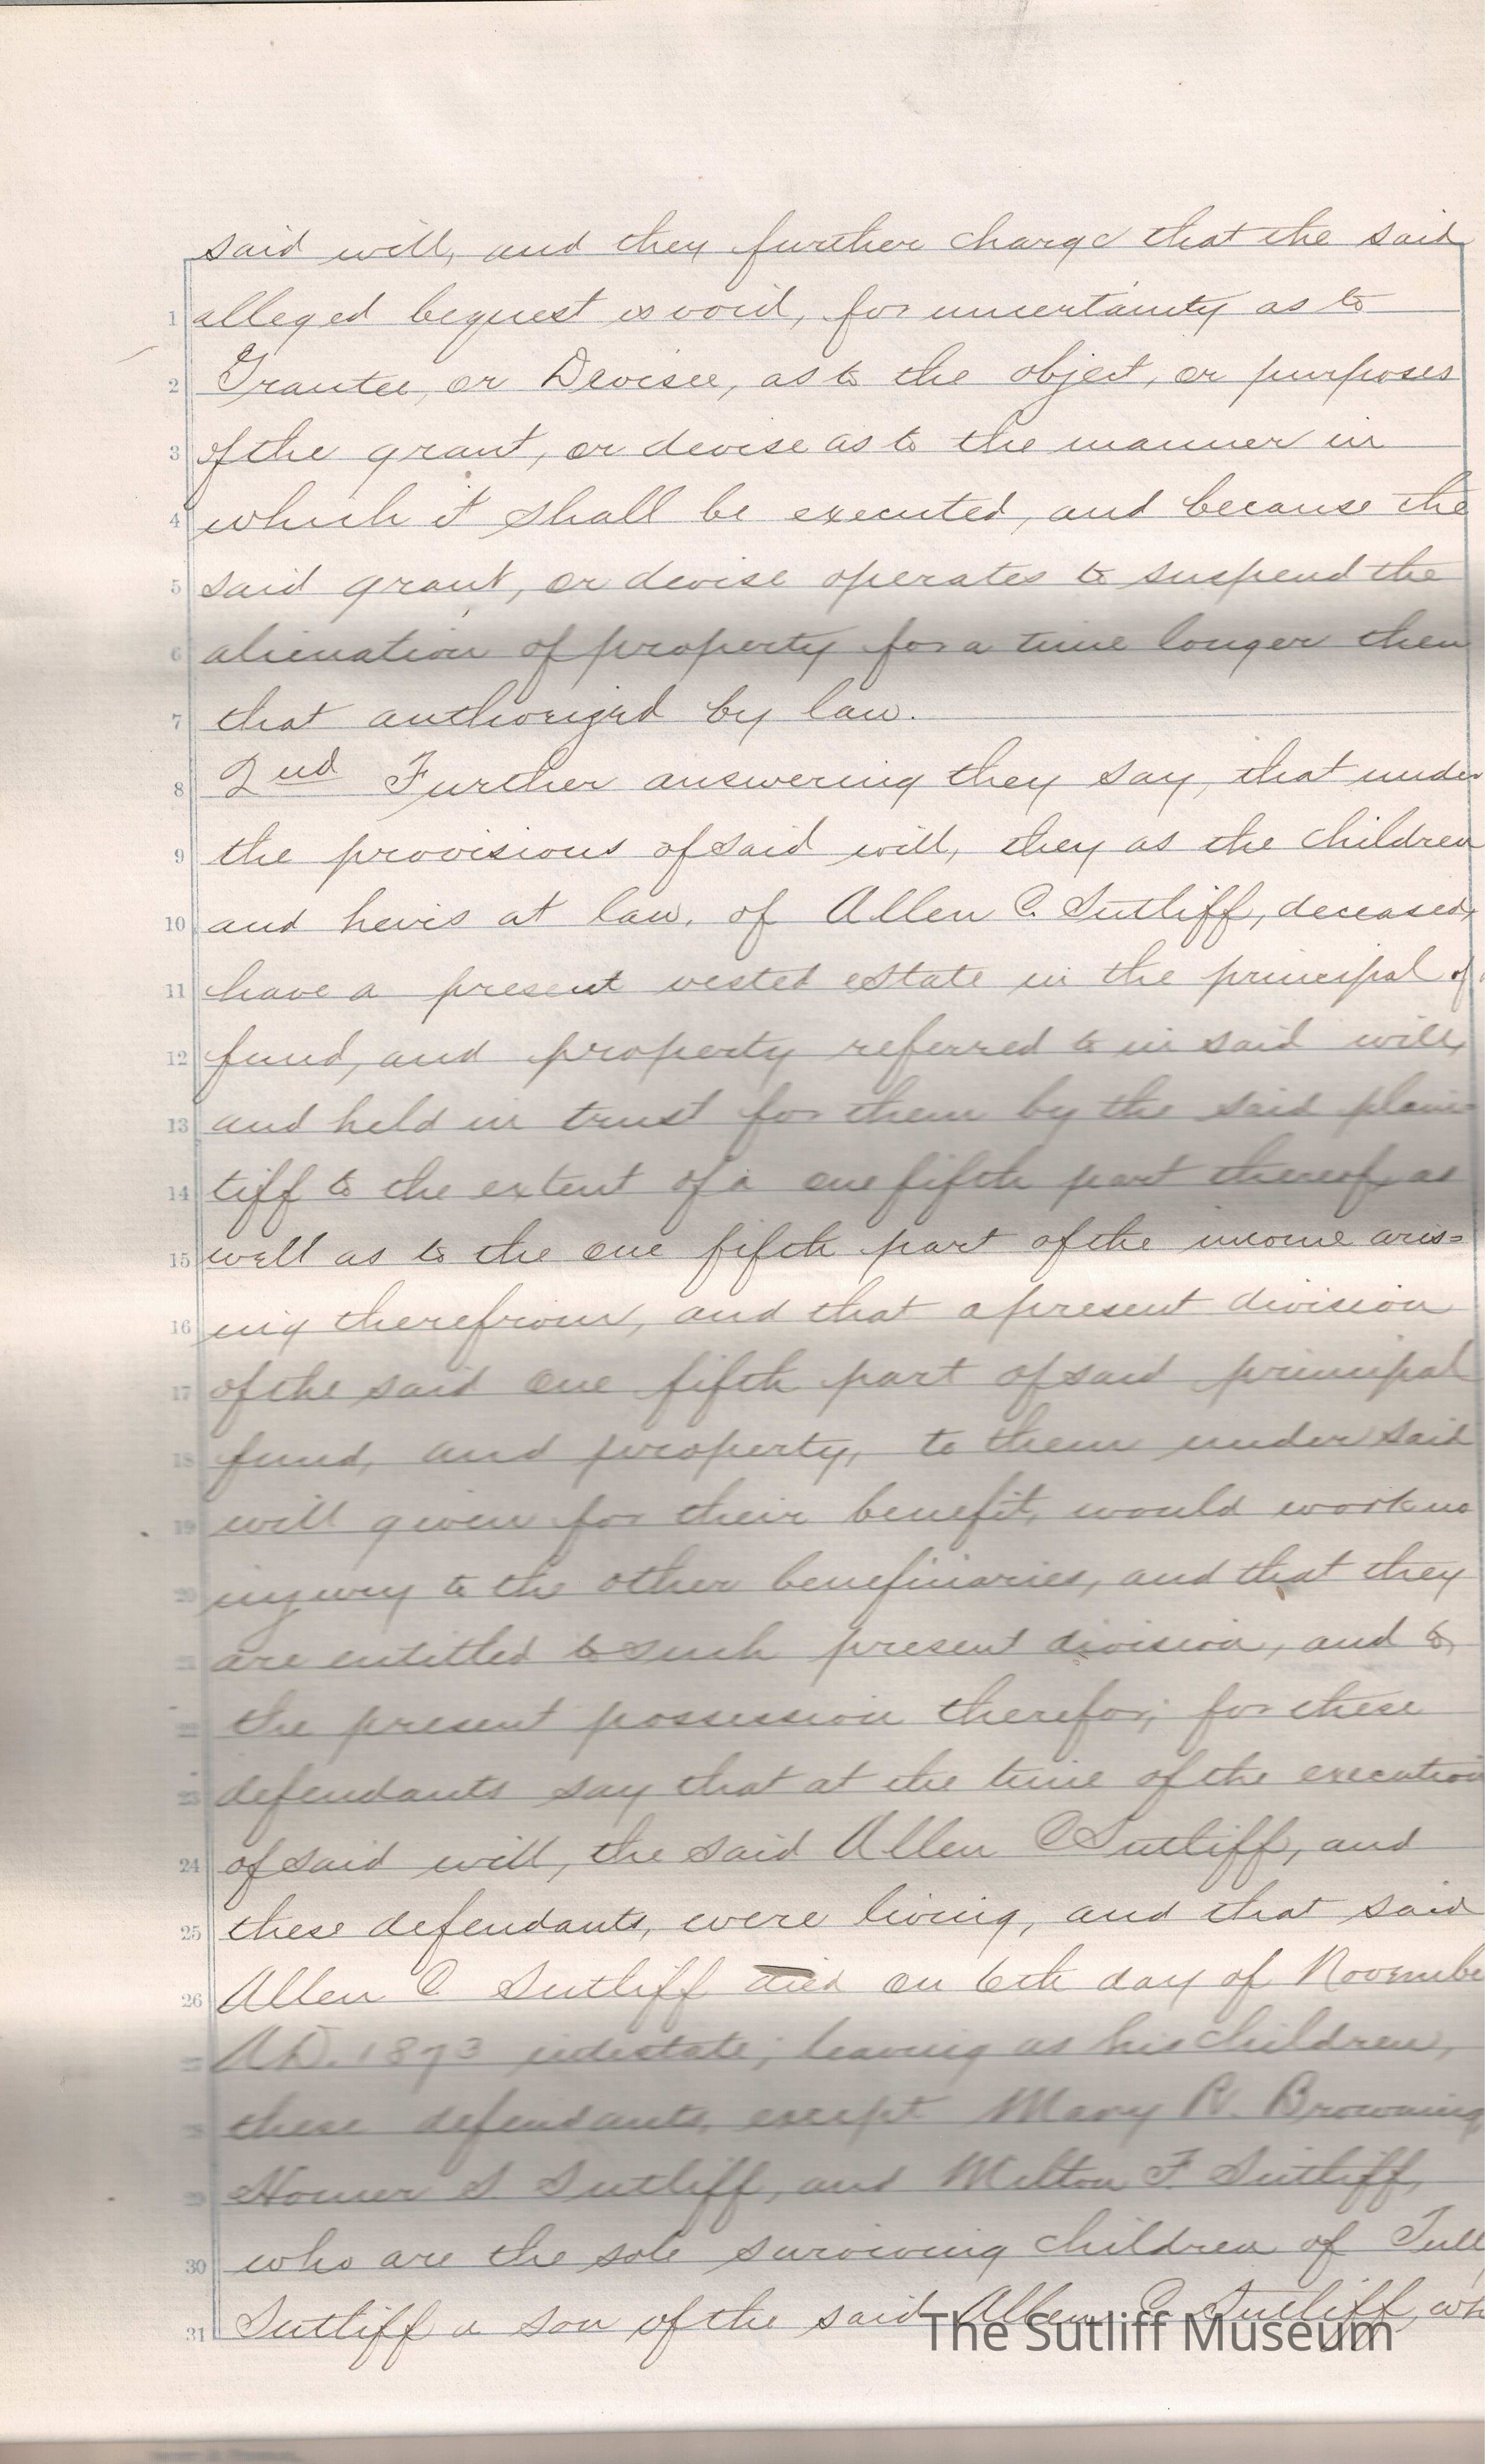 said will, and they further charge that the said
1 alleged bequest is void, for uncertainty as to
2 Grantee, or Devisee, as to the object, or purposes
3 of the grant, or devise as to the manner in
4 which it shall be executed, and because the
5 said grant, or devise operates to suspend the
6 alienation of property for a time longer then
7 that authorized by law.
8 2nd Further answering they say, that under
9 the provisions of said will, they as the children
10 and heirs at law, of Allen C. Sutliff, deceased,
11 have a present vested estate in the principal of
12 fund, and property referred to in said will,
13 and held in trust for them by the said plain
14 tiff to the extent of a one fifth part thereof, as
15 well as to the one fifth part of the income aris=
16 ing therefrom, and that a present division
17 of the said one fifth part of said principal
18 fund, and property, to them under said
19 will given for their benefit, would work no
20 injury to the other beneficiaries, and that they
are entitled to such present division, and to
22 the present possession therefor; for these
23 defendants say that at the time of the execution
24 of said will, the said Allen C Sutliff, and
25 these defendants, were living, and that said
26 Allen C Sutliff died on 6th day of Novembe
AD. 1873 intestate; leaving as his children,
these defendants, except Mary R. Browning
29 Homer S. Sutliff, and Milton F. Sutliff,
30 who are the sole surviving children of Tull
31 Sutliff a son of the said Allen C Sutliff, wh
The Sutliff Museum